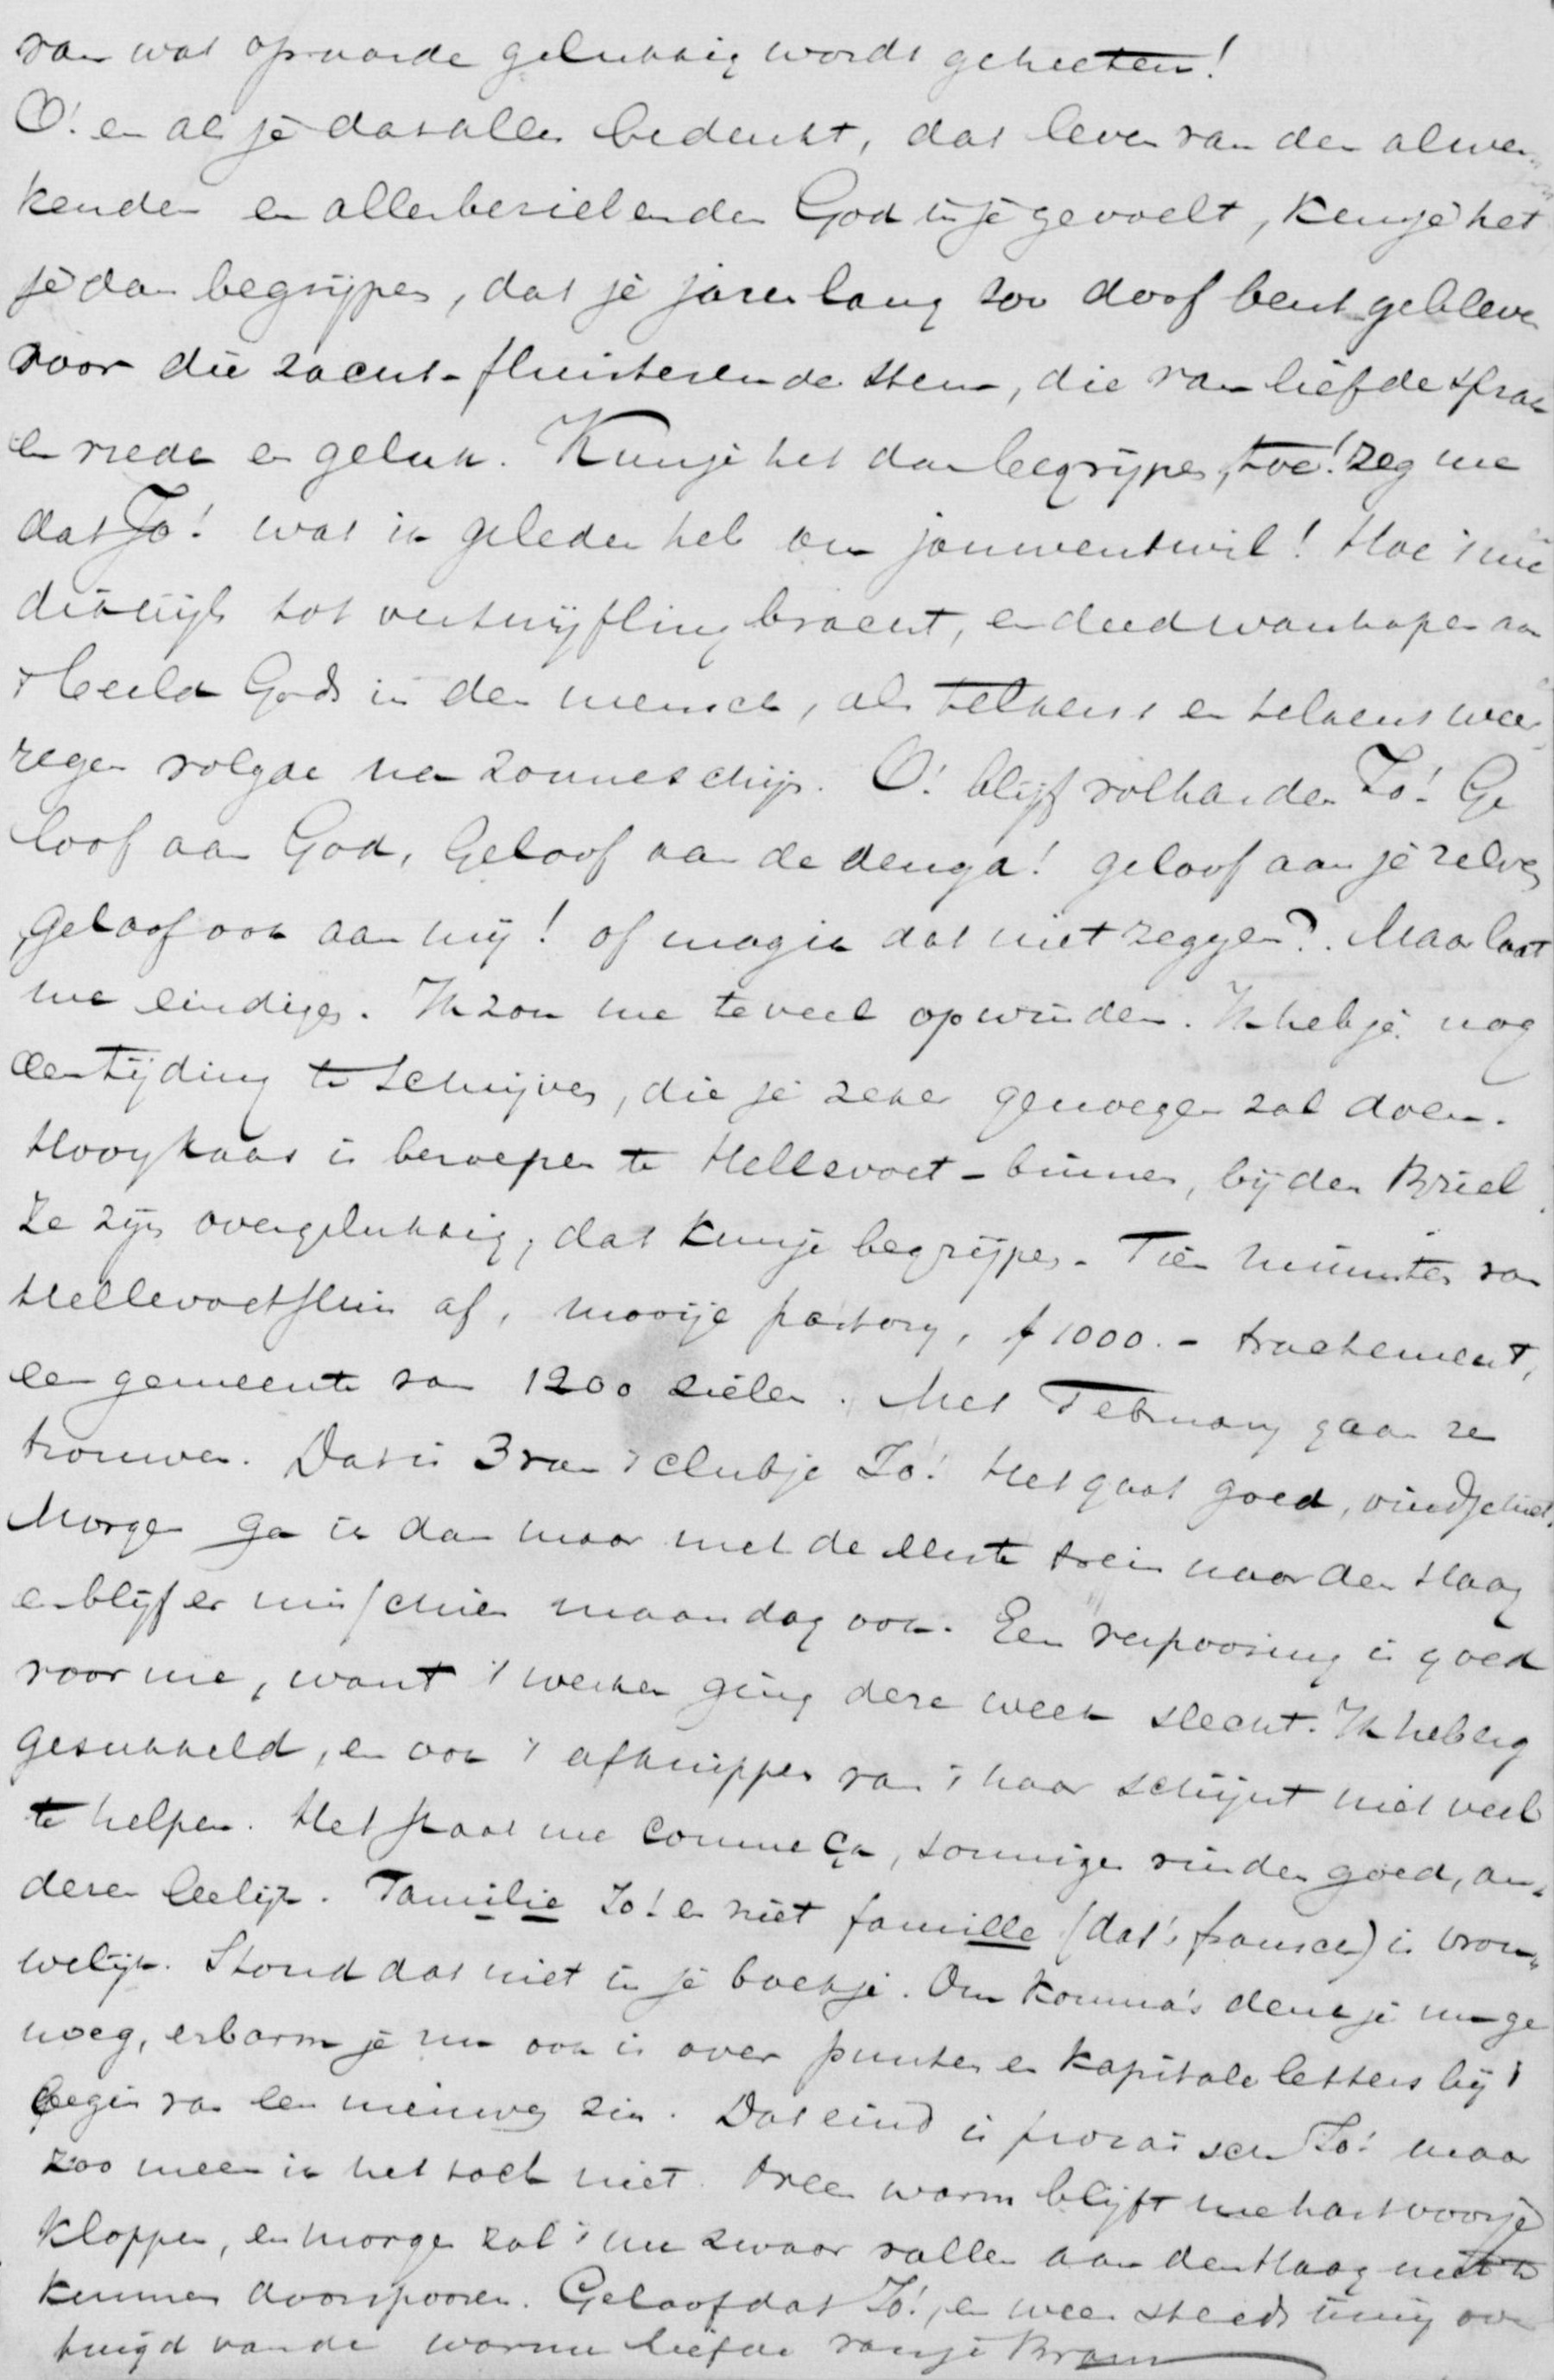 van wat op aarde gelukkig wordt geheeten!
O! en als je dat alles bedenkt, dat leven van den alwer„
kenden en allenbezielenden God in je gevoelt, kun je het
je dan begrijpen, dat je jaren lang zoo doof bent gebleven
voor die zacht-fluisterende stem, die van liefde sprak
en vrede en geluk. Kun je het dan begrijpen, toe! zeg me
dat Jo! wat ik geleden heb om jouwentwil! Hoe 't me
dikwijls tot vertwijfling bracht, en deed wanhopen aan
't beeld Gods in den mensch, als telkens en telkens weer
regen volgde na zonneschijn. O! blijf volharden Jo! Ge
loof aan God, Geloof aan de deugd! geloof aan je zelve,
geloof ook aan mij! of mag ik dat niet zeggen? Maar laat
me eindigen. Ik zou me te veel opwinden. Ik heb je nog
een tijding te schrijven, die je zeker genoegen zal doen.
Hooykaas is beroepen te Hellevoet-binnen, bij den Briel.
Ze zijn overgelukkig, dat kun je begrijpen. Tien minuten van
Hellevoetsluis af, mooije pastory, f 1000.- tractement,
een gemeente van 1200 zielen. Met February gaan ze
trouwen. Dat is 3 van 't clubje Jo! Het gaat goed, vind je niet.
Morgen ga ik dan maar met de eerste trein naar den Haag
en blijf er misschien maandag ook. Een verpoosing is goed
voor me, want 't werken ging deze week slecht. Ik heb erg
gesukkeld, en ook 't afknippen van 't haar schijnt niet veel
te helpen. Het staat me comme ça, sommigen vinden goed, an„
deren leelijk. Familie Jo! en niet famille (dat's fransch) is vrou„
welijk. Stond dat niet in je boekje. Om komma's denk je nu ge
noeg, erbarm je nu ook is over punten en kapitale letters bij 't
begin van een nieuwen zin. Dat eind is prozaisch Jo! maar
zoo meen ik het toch niet. Heel warm blijft me hart voor je
kloppen, en morgen zal 't me zwaar vallen aan den Haag niet te
kunnen doorspooren. Geloof dat Jo!, en wees steeds innig over
tuigd van de warme liefde van je Bram